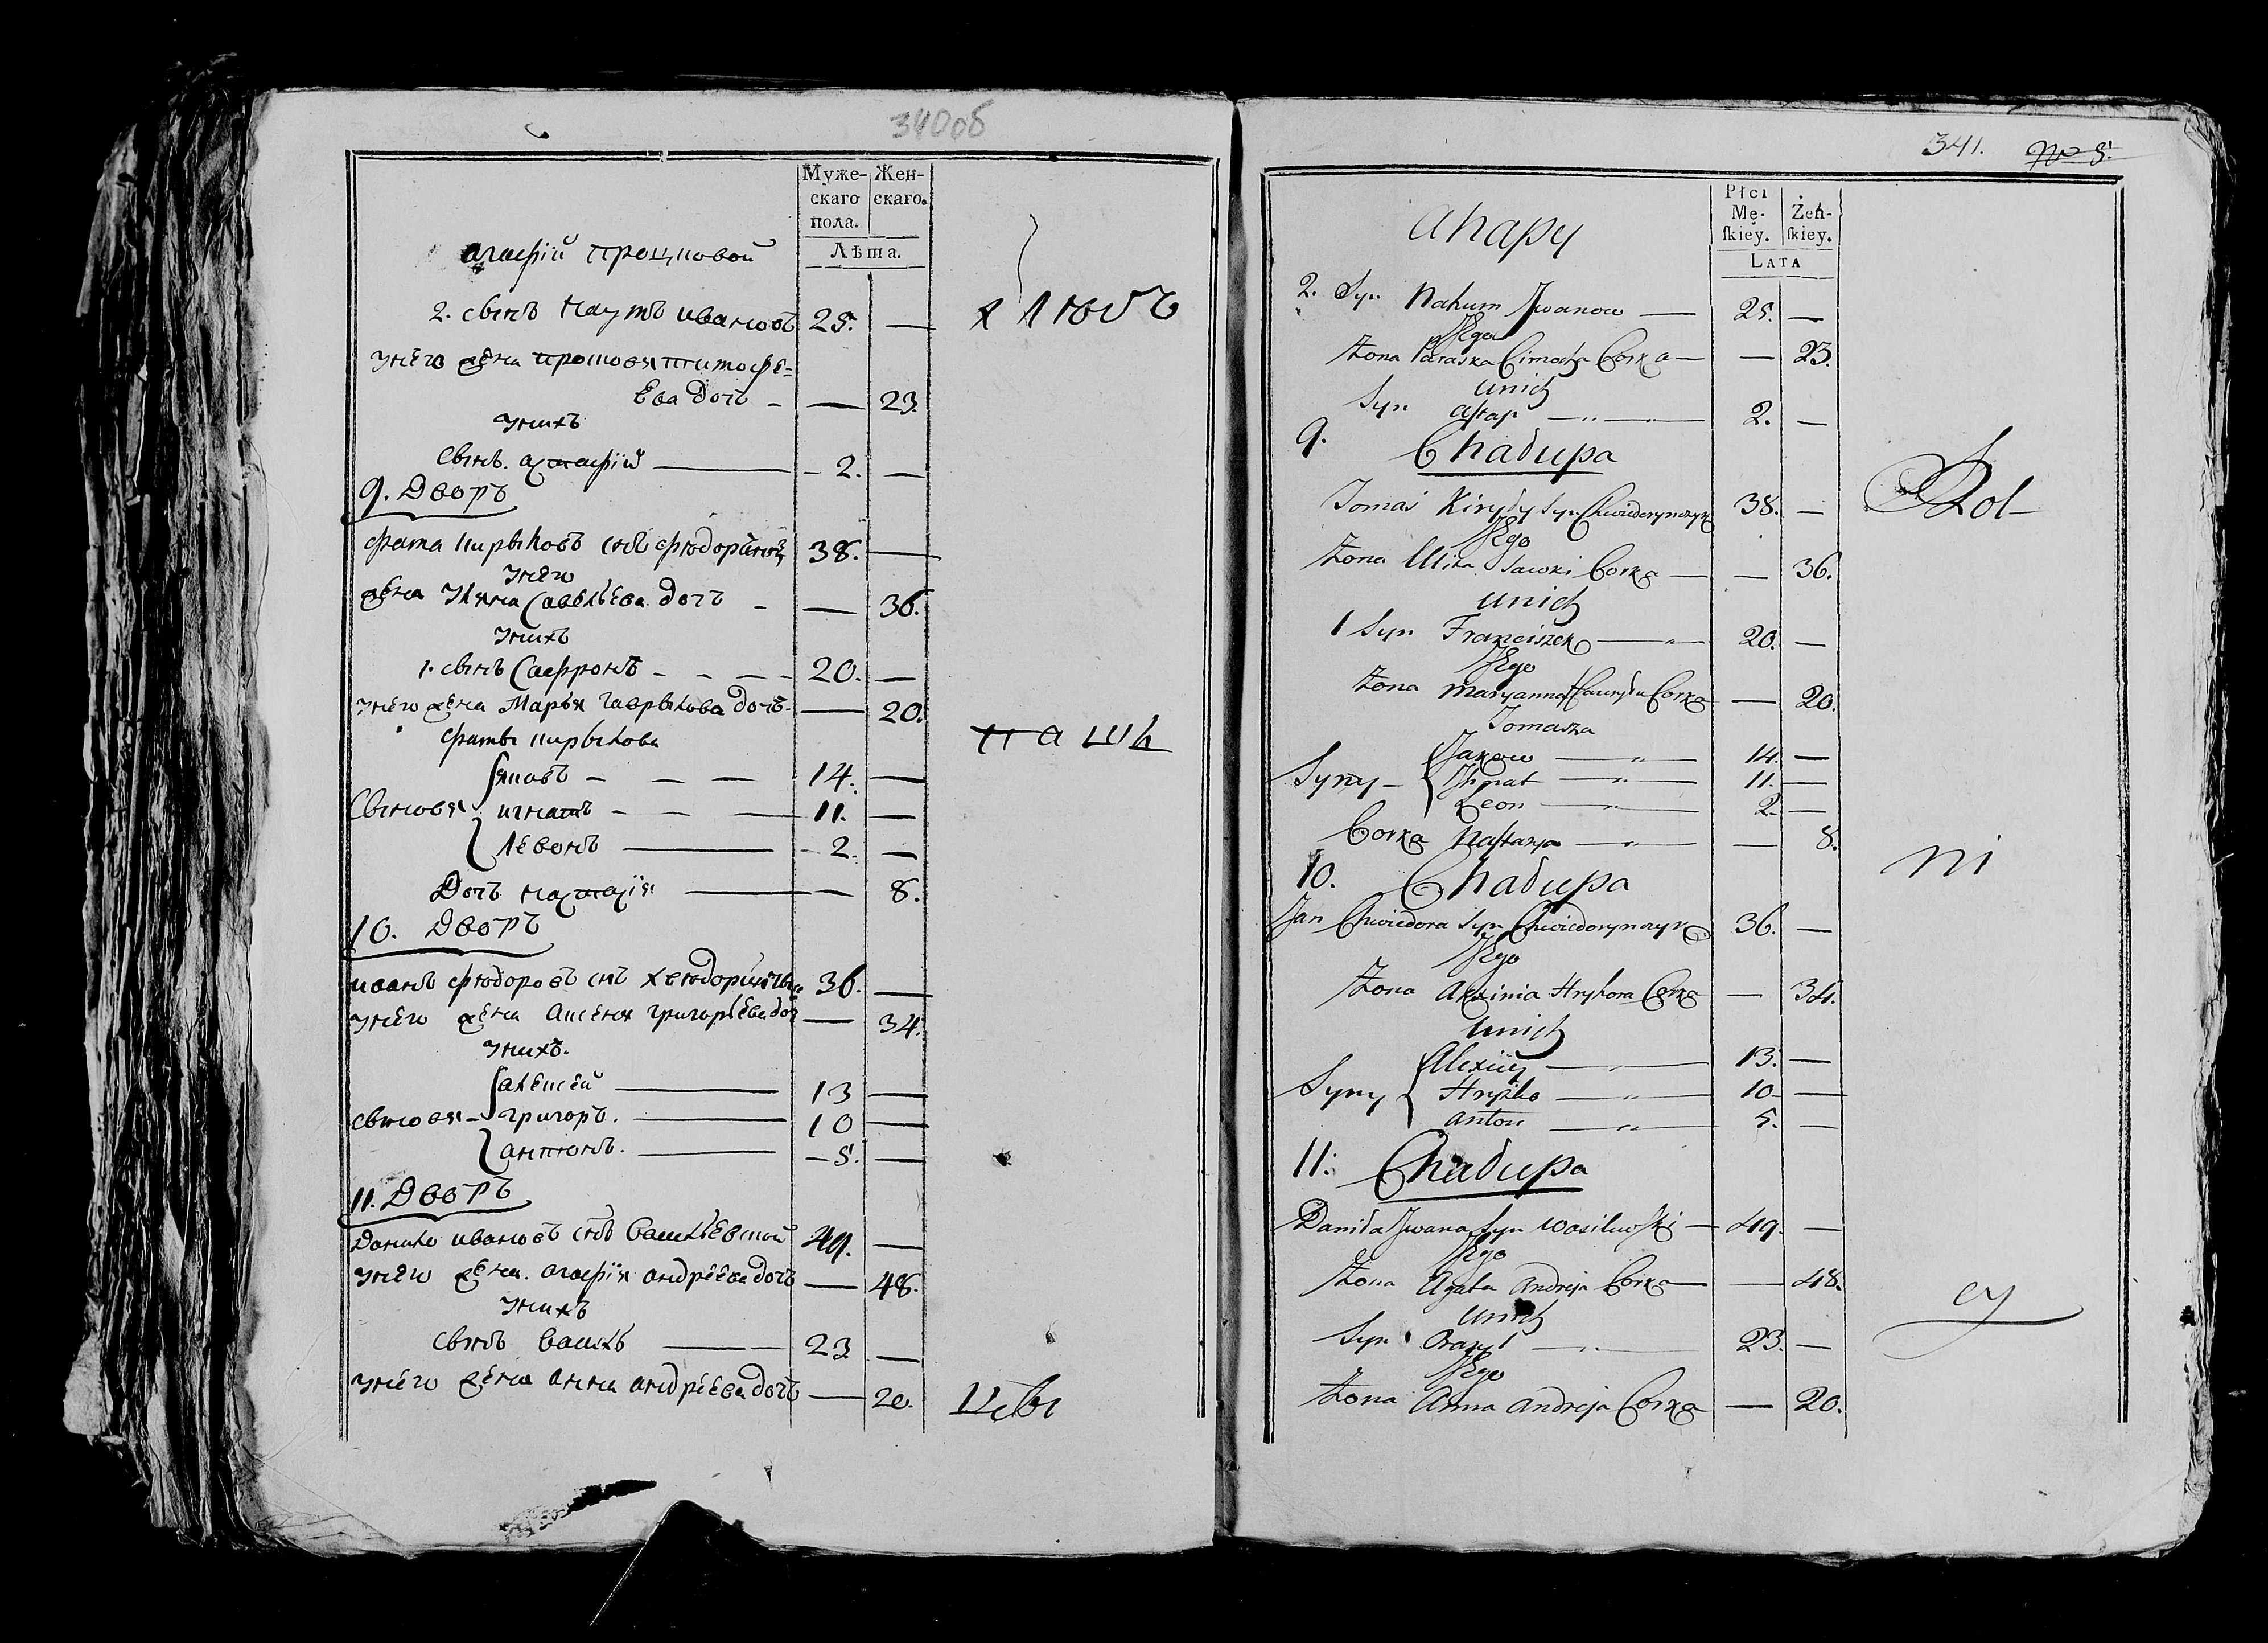 340об
Муже-
скаго
пола.
Жен-
скаго.
Лѣта.
агафіи процковой
2. сынъ наумъ ивановъ 25. —
хлюбъ
у него жена просковя тимофе=
ева дочь - — 23.
у нихъ
сынъ. астафій — 2. —
9. Дворъ
фама кирыловъ снъ 38. —
у него
жена уляна савельева дочь - — 36.
у нихъ
1. сынъ сафронъ - - - - 20. —
у него жена марья гаврылова дочь - — 20.
фамы кирылова
паши
яковъ - — — 14. —
сыновя игнатъ - — — 11. —
левонъ — 2. —
Дочь настасія — — 8.
10. Дворъ
иванъ фюдоровъ снъ 36. —
у него жена аксеня григорьева доч — 34.
у нихъ.
алексей — 13 —
сыновя - григоръ. — 10 —
антонъ. — 5. —
11. Дворъ
данило ивановъ снъ васильевской 49. —
у него жена. агафія андреева дочь — 48.
у нихъ
сынъ василь — 23 —
у него жена анна андреева дочь — 20.
цы
341. No 5.
Płci
Mę-
skiey.
Żeń-
skiey.
LATA
Ahapy
2. Syn Nahum Iwanow — 25. —
Jego
Żona Paraska Cimocha Corka — — 23.
u nich
Syn Astap — 2. —
9. Chałupa
Tomas Kiryły Syn Chwiedorynczyk 38. —
Rol-
Jego
Żona Ulita Sawki Corka — — 36.
u nich
1 Syn Franciszek — 20. —
Jego
Żona Maryanna Hawryła Corka — 20.
Tomasza
Jakow — 14. —
Syny - Ihnat — 11. —
Leon — 2. —
Corka Nastazya — — 8.
ni
10. Chałupa
Jan Chwiedora Syn Chwiedorynczyk 36. —
Jego
Żona Axinia Hryhora Corka — 34.
u nich
Alexiey — 13. —
Syny Hryszko — 10 —
Anton — 5. —
11. Chałupa
Daniła Iwana Syn Wasilewski — 49. —
Jego
Żona Agata Andreja Corka — — 48.
cy
u nich
Syn Bazyl — 23. —
Jego
Żona Anna Andreja Corka — 20.